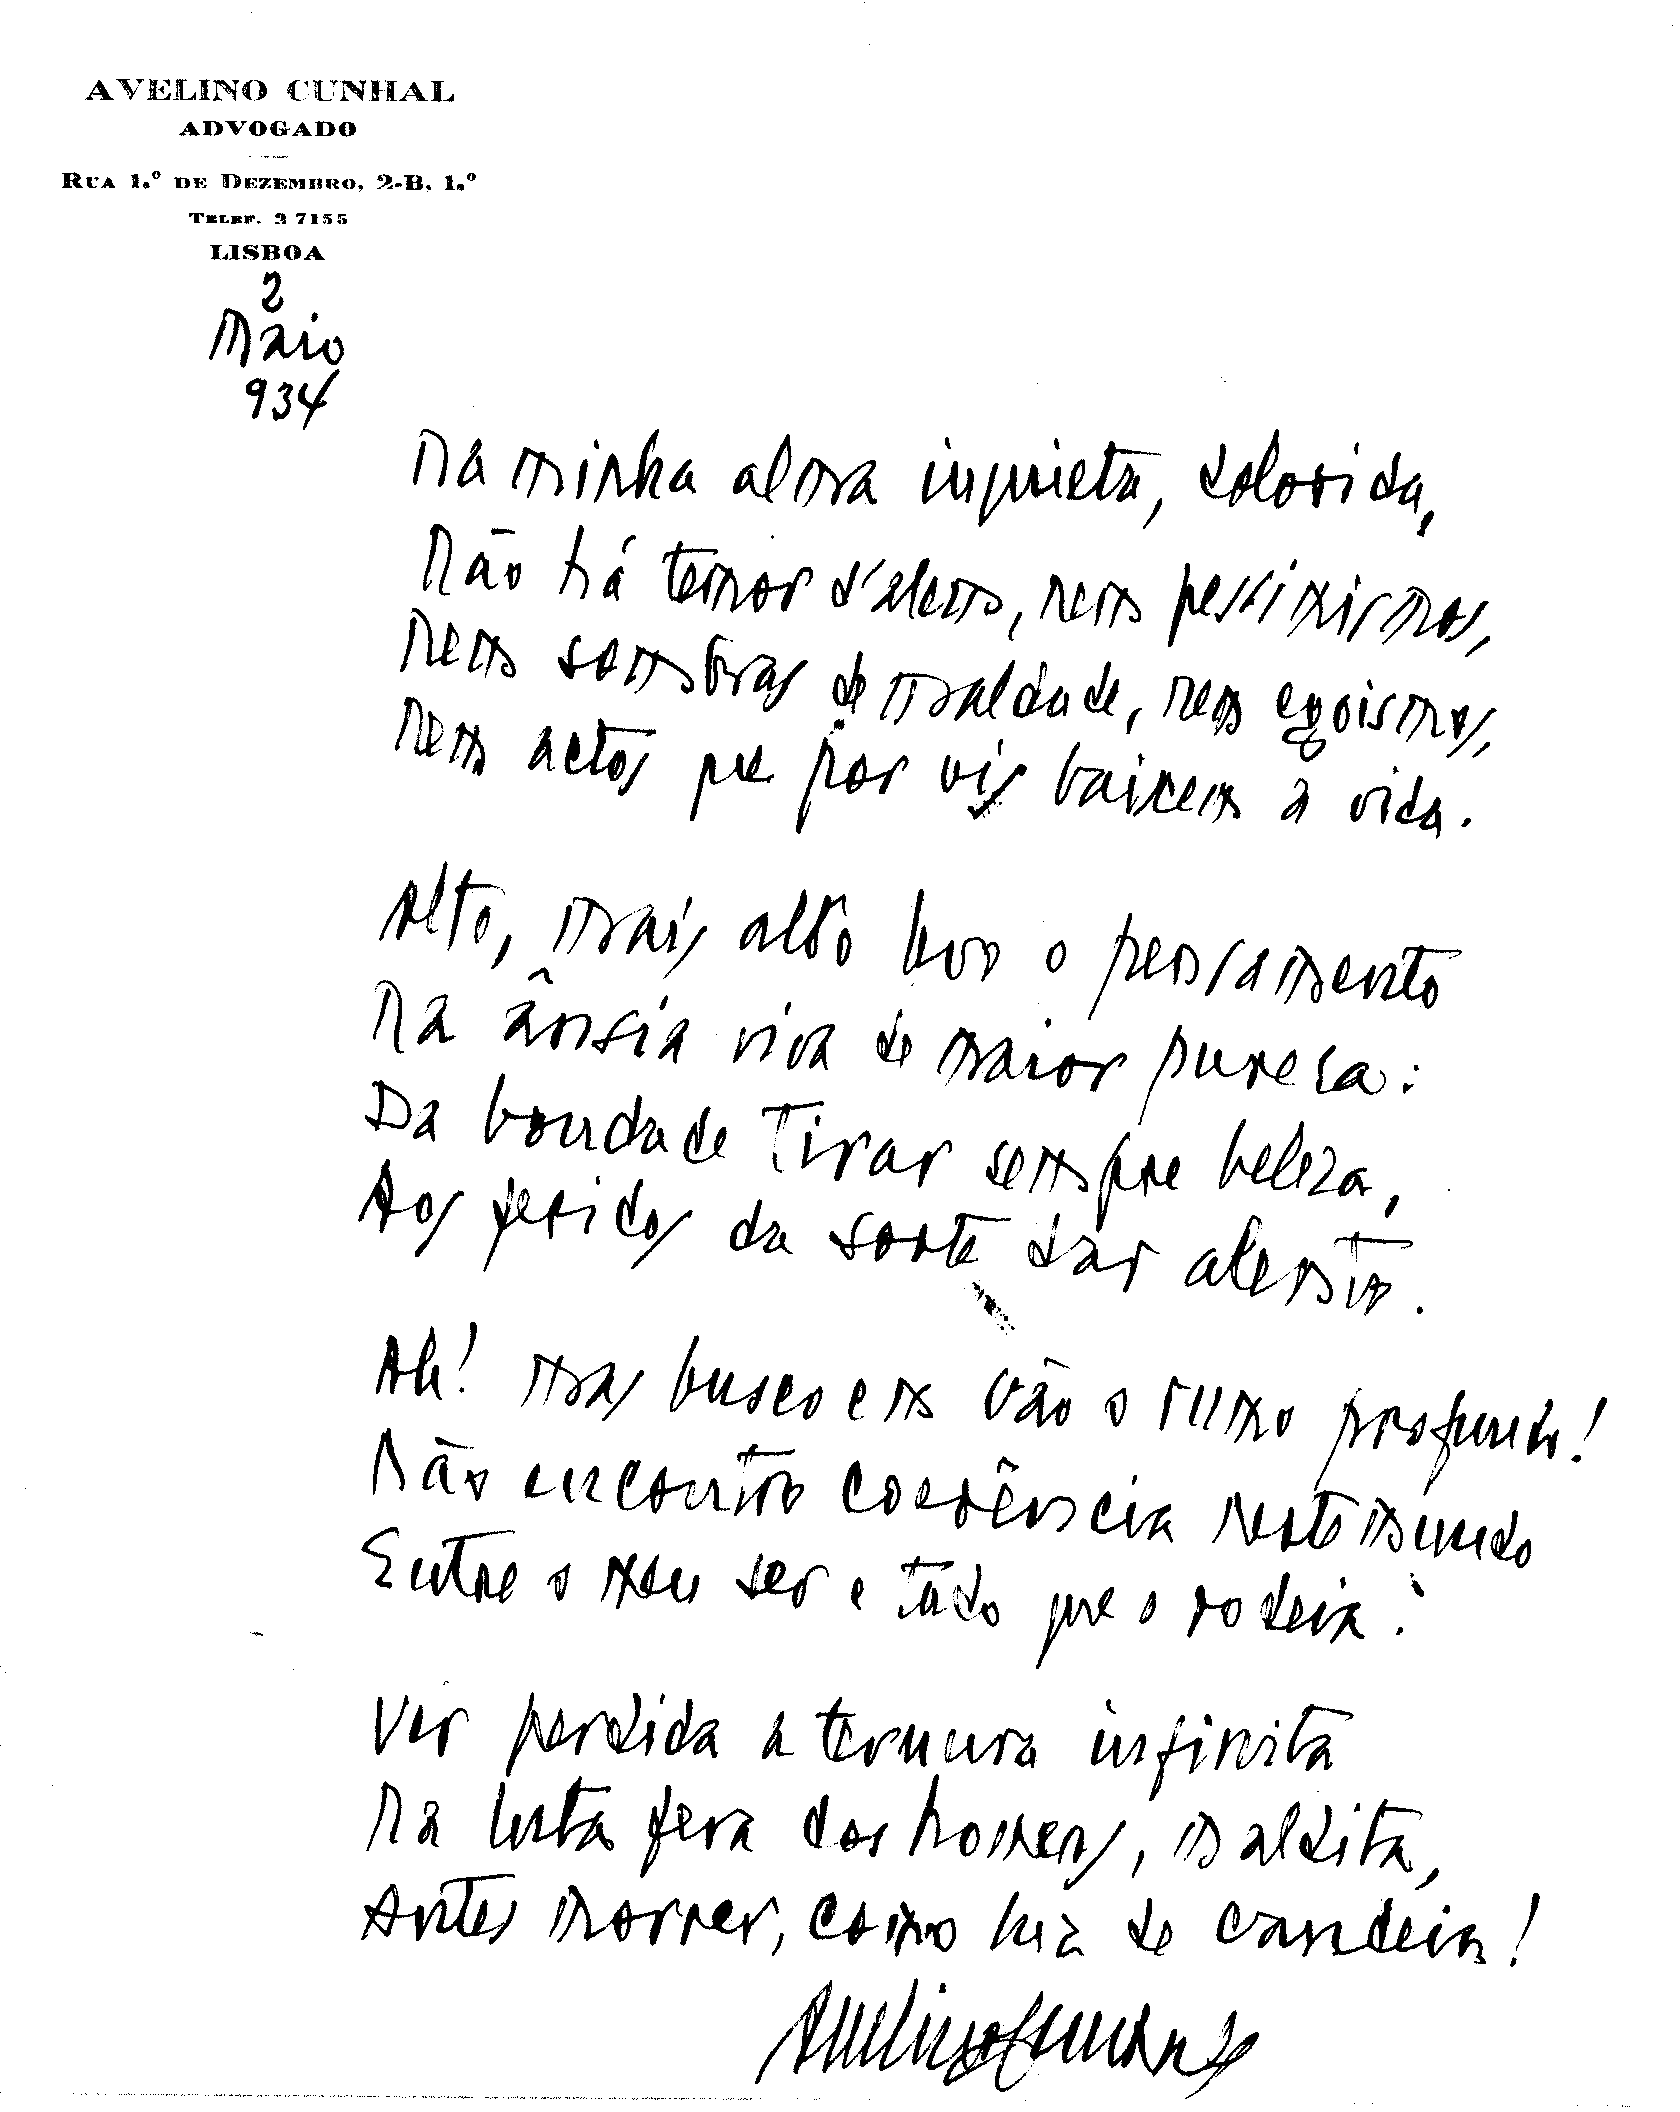 AVELINO CUNHAL
ADVOGADO
RUA 1.º DE DEZEMBRO, 2-B, 1.º
TELEF. 27155
LISBOA
2
Maio
934
Na minha alma inquieta, dolorida,
Não há temor d'alem, nem pessimismos,
Nem sombras de maldade, nem egoismos,
Nem actos que por vis baixem a vida.
Alto, mais alto levo o pensamento
Na ânsia viva de maior puresa:
Da bondade tirar sempre beleza,
Aos feridos da sorte dar alento.
Ah! mas busco em vão o rumo profundo!
Não encontro coerência neste mundo
Entre o meu ser e tudo que o rodeia:
Ver perdida a ternura infinita
Na luta fera dos homens, maldita,
Antes morrer, como luz de candeia!
Avelino Cunhal